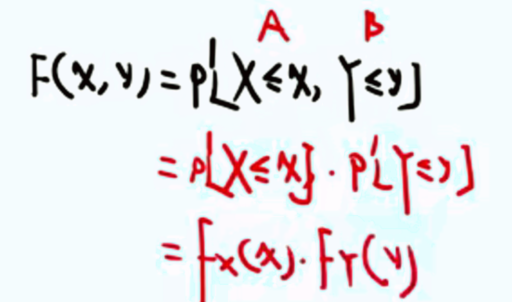 A B
F(x,y)=P[X≤x, Y≤y]
=P[X≤x]·P[Y≤y]
=Fx(x)·FY(y)